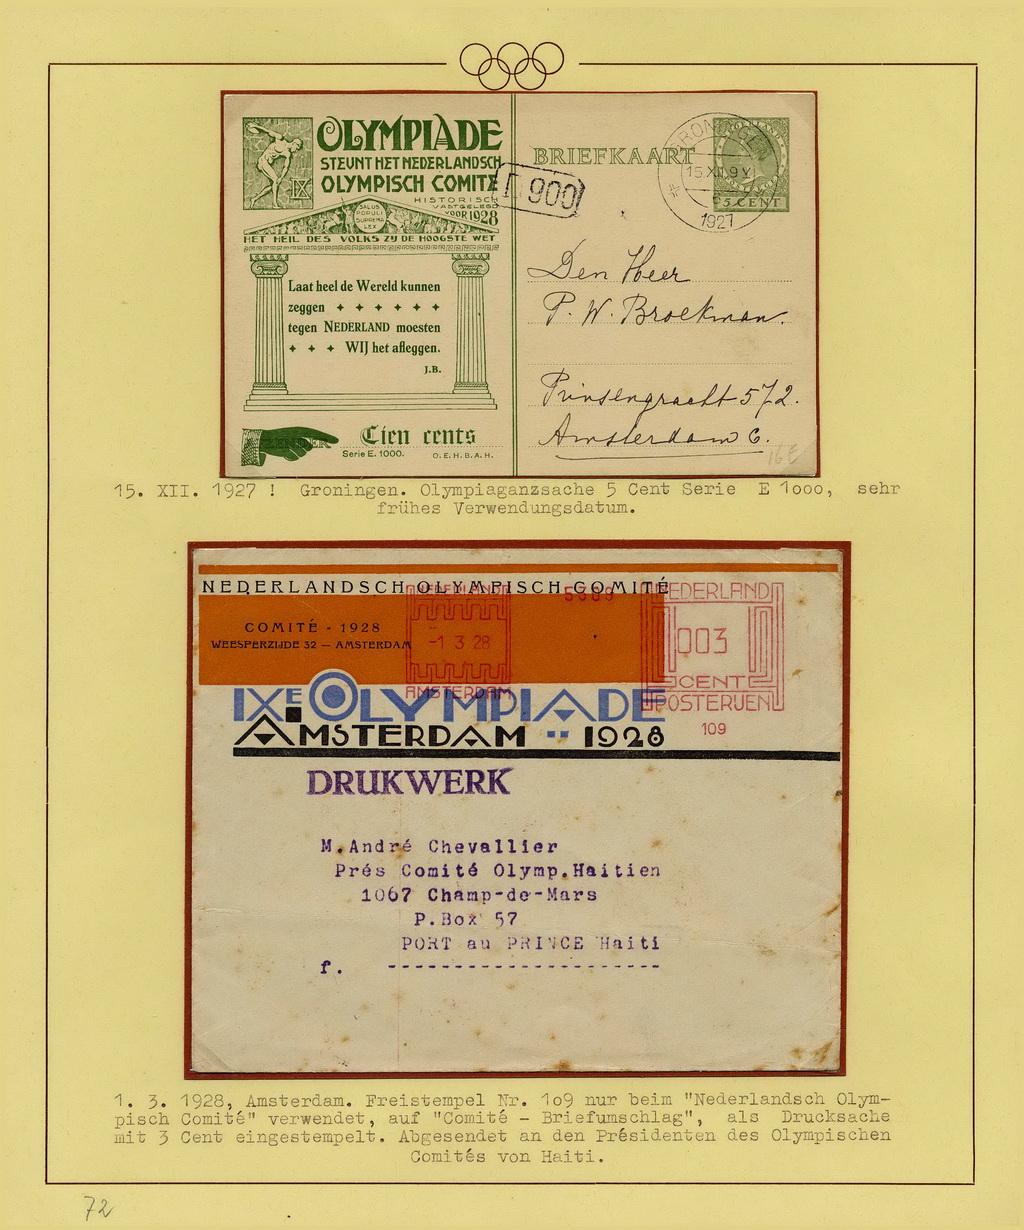 OLYMPIADE
STEUNT HET NEDERLANDSCH
OLYMPISCH COMITÉ
IX
HISTORISCH
VASTGELEGD
VOOR 1928
SALUS
POPULI
SUPREMA
LEX
HET HEIL DES VOLKS ZIJ DE HOOGSTE WET
Laat heel de Wereld kunnen
zeggen + + + + + +
tegen NEDERLAND moesten
+ + + WIJ het afleggen.
J.B.
Tien cents
Serie E. 1000.
O.E.H.B.A.H.
BRIEFKAART
900
GRONINGEN
15.XII.9 V
1927
5 CENT
Den Heer
P. W. Broekman.
Prinsengracht 572.
Amsterdam C.
16E
15. XII. 1927 ! Groningen. Olympiaganzsache 5 Cent Serie E 1ooo, sehr
frühes Verwendungsdatum.
NEDERLANDSCH OLYMPISCH COMITÉ
COMITÉ - 1928
WEESPERZIJDE 32 — AMSTERDAM
NEDERLAND
-1 3 28
AMSTERDAM
NEDERLAND
003
CENT
POSTERIJEN
109
IXE OLYMPIADE
AMSTERDAM 1928
DRUKWERK
M.André Chevallier
Prés Comité Olymp.Haitien
1067 Champ-de-Mars
P.Box 57
PORT au PRINCE Haiti
f. --------------------
1. 3. 1928, Amsterdam. Freistempel Nr. 1o9 nur beim "Nederlandsch Olym-
pisch Comité" verwendet, auf "Comité - Briefumschlag", als Drucksache
mit 3 Cent eingestempelt. Abgesendet an den Présidenten des Olympischen
Comités von Haiti.
72